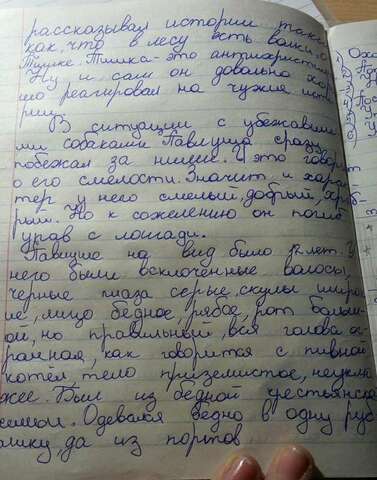 рассказывал истории такие
как, что в лесу есть волки, о
Тришке. Тришка-это антихрист.
Ну и сам он довольно хоро
шо реагировал на чужие исто
рии.
В ситуации с убежавши
ми собаками Павлуша сразу
побежал за ними. И это говорит
о его смелости. Значит и харак
тер у него смелый, добрый, храб
рый. Но к сожелению он погиб
упав с лошади.
Павлуше на вид было 12 лет. У
него были всклоченные волосы,
черные глаза серые, скулы широк
ие, лицо бедное, рябое, рот больш
ой, но правильный, вся голова ог
ромная, как говорится с пивной
котёл, тело приземистое, неуклю
жее. Был из бедной крестьянской
семьи. Одевался бедно в одну руб
ашку, да из портов